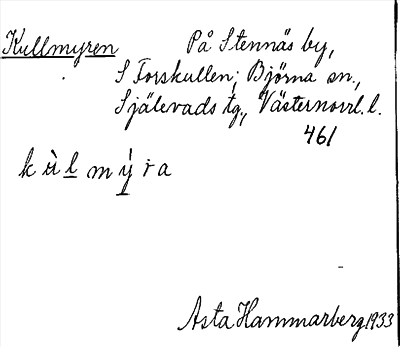 Kullmyren På Stennäs by,
S Forskullen; Björna sn.,
Själevads tg., Västernorrl. l.
461
k ù l m ỳ r a
Asta Hammarberg 1933